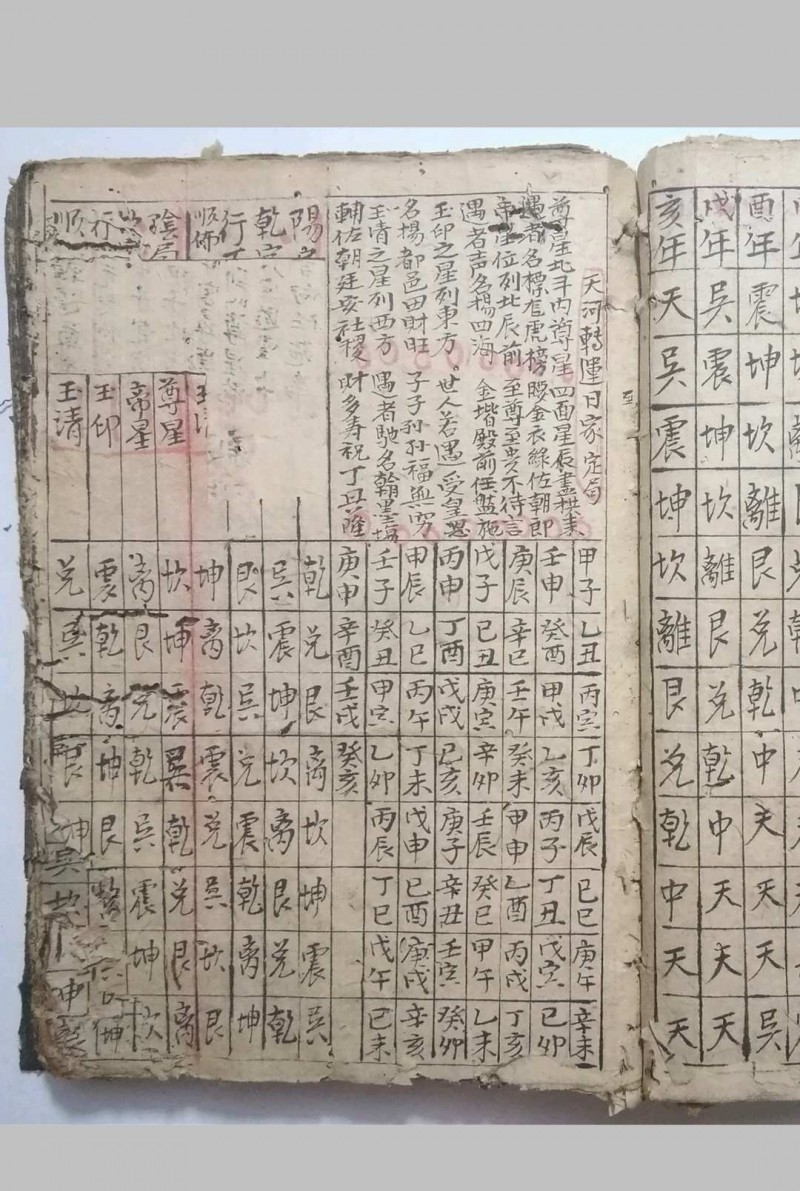 酉年 震 坤 坎 離 艮 兌 乾 中 天 天 天 吳
戌年 吳 震 坤 坎 離 艮 兌 乾 中 天 天 天
亥年 天 吳 震 坤 坎 離 艮 兌 乾 中 天 天
天河轉運日家定局
尊星北斗內尊星 四面星辰盡拱來
遇者名標龍虎榜 腰金衣綠佐朝郎
帝星位列北辰前 至尊至贵不待言
遇者吉名揚四海 金堦殿前任監施
玉印之星列東方 世人若遇受皇恩
名揚都邑田財旺 子子孙孙福無穷
玉清之星列西方 遇者馳名翰墨塲
輔佐朝廷安社稷 財多寿祝丁興隆
甲子 乙丑 丙寅 丁卯 戊辰 己巳 庚午 辛未
壬申 癸酉 甲戌 乙亥 丙子 丁丑 戊寅 己卯
庚辰 辛巳 壬午 癸未 甲申 乙酉 丙戌 丁亥
戊子 己丑 庚寅 辛卯 壬辰 癸巳 甲午 乙未
丙申 丁酉 戊戌 己亥 庚子 辛丑 壬寅 癸卯
甲辰 乙巳 丙午 丁未 戊申 己酉 庚戌 辛亥
壬子 癸丑 甲寅 乙卯 丙辰 丁巳 戊午 己未
庚申 辛酉 壬戌 癸亥
陽
乾宮
行
順佈
陰局
順
尊星
帝星
玉印
玉清
乾 兌 艮 离 坎 坤 震 吳
吳 震 坤 坎 离 艮 兌 乾
艮 坎 吳 兌 震 乾 离 坤
坤 离 乾 震 兌 吳 坎 艮
坎 坤 震 巽 乾 兌 艮 离
离 艮 兌 乾 吳 震 坤 坎
震 乾 离 坤 艮
兌 艮 坤